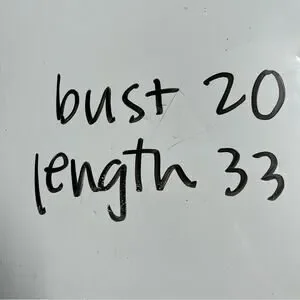 bust 20
length 33